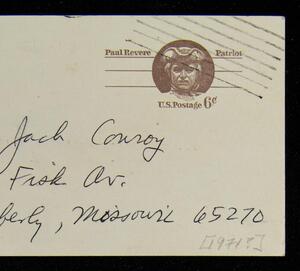 Paul Revere Patriot
U.S. Postage 6¢
Jack Conroy
Fisk Av.
berly, Missouri 65270
[1971?]